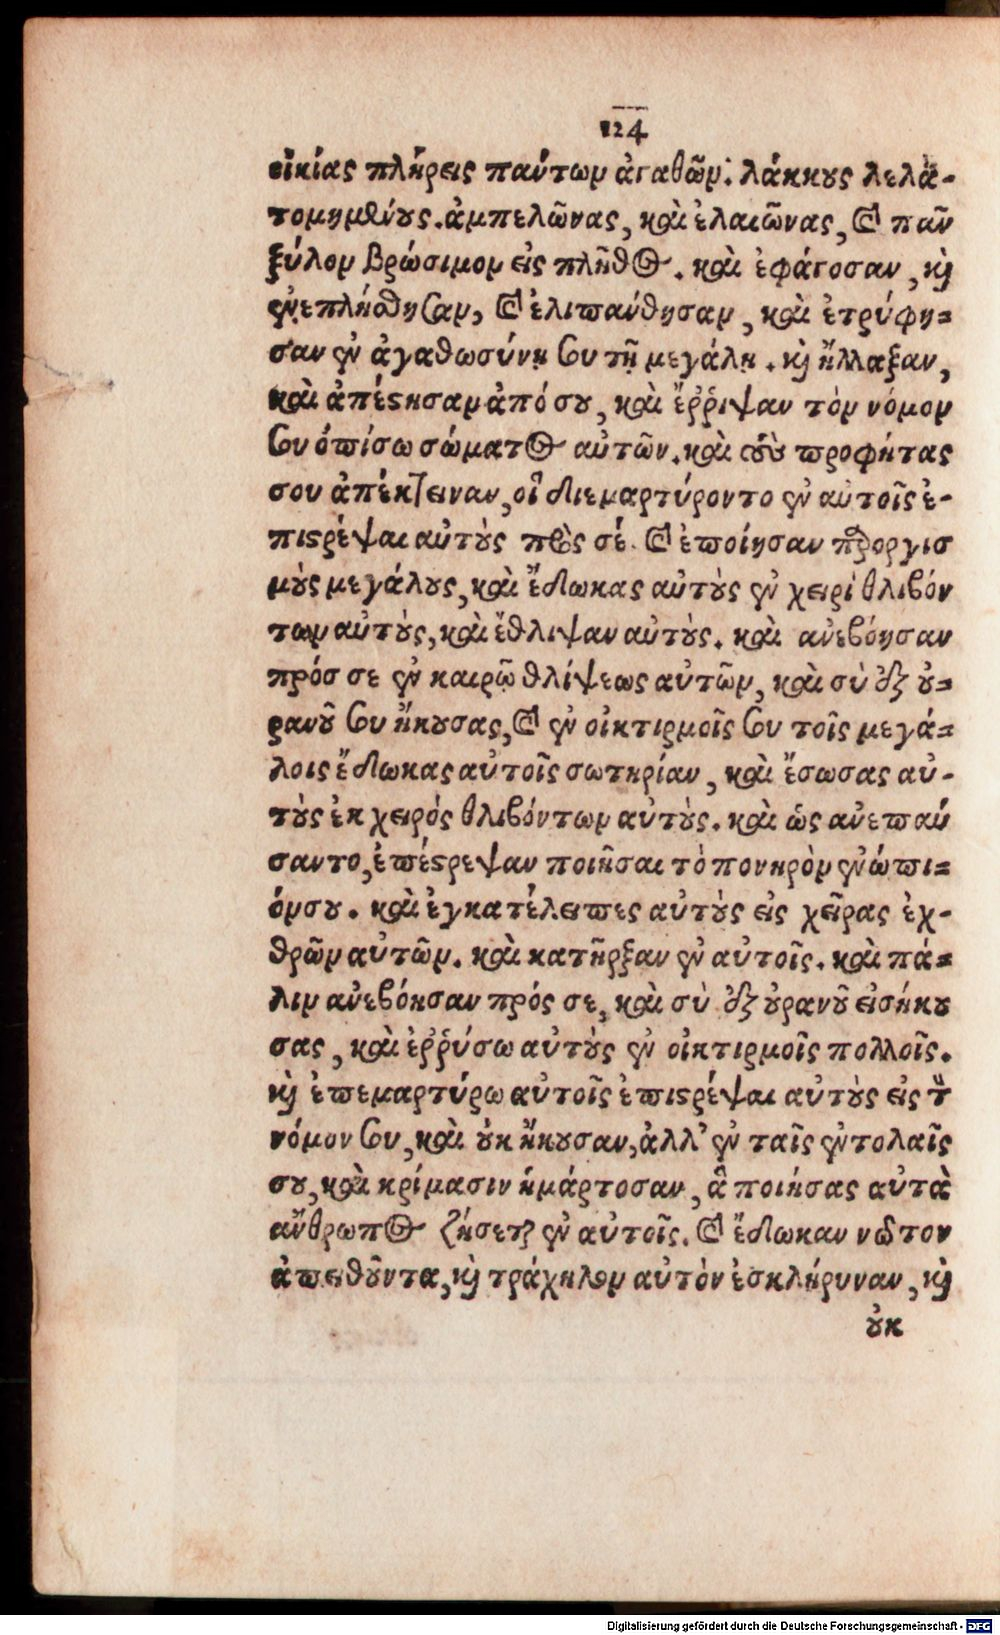 124
οἰκίας πλήρεις πάντων ἀγαθῶν· λάκκους λελα-
τομημένους. ἀμπελῶνας, καὶ ἐλαιῶνας, καὶ πᾶν
ξύλον βρώσιμον εἰς πλῆθος. καὶ ἐφάγοσαν, καὶ
ἐνεπλήσθησαν, καὶ ἐλιπάνθησαν, καὶ ἐτρύφη-
σαν ἐν ἀγαθωσύνῃ σου τῇ μεγάλῃ. καὶ ἤλλαξαν,
καὶ ἀπέστησαν ἀπό σου, καὶ ἔῤῥιψαν τὸν νόμον
σου ὀπίσω σώματος αὐτῶν. καὶ τοὺς προφήτας
σου ἀπέκτειναν, οἳ διεμαρτύροντο ἐν αὐτοῖς ἐ-
πιστρέψαι αὐτοὺς πρὸς σέ. καὶ ἐποίησαν παροργισ
μοὺς μεγάλους, καὶ ἔδωκας αὐτοὺς ἐν χειρὶ θλιβόν
των αὐτοὺς, καὶ ἔθλιψαν αὐτοὺς. καὶ ἀνεβόησαν
πρός σε ἐν καιρῷ θλίψεως αὐτῶν, καὶ σὺ ἐξ οὐ-
ρανοῦ σου ἤκουσας, καὶ ἐν οἰκτιρμοῖς σου τοῖς μεγά-
λοις ἔδωκας αὐτοῖς σωτηρίαν, καὶ ἔσωσας αὐ-
τοὺς ἐκ χειρὸς θλιβόντων αὐτοὺς. καὶ ὡς ἀνεπαύ
σαντο, ἐπέστρεψαν ποιῆσαι τὸ πονηρὸν ἐνώπι-
όν σου. καὶ ἐγκατέλειπες αὐτοὺς εἰς χεῖρας ἐχ-
θρῶν αὐτῶν. καὶ κατῆρξαν ἐν αὐτοῖς. καὶ πά-
λιν ἀνεβόησαν πρός σε, καὶ σὺ ἐξ οὐρανοῦ εἰσήκου
σας, καὶ ἐῤῥύσω αὐτοὺς ἐν οἰκτιρμοῖς πολλοῖς.
καὶ ἐπεμαρτύρω αὐτοῖς ἐπιστρέψαι αὐτοὺς εἰς τὸν
νόμον σου, καὶ οὐκ ἤκουσαν, ἀλλ' ἐν ταῖς ἐντολαῖς
σου, καὶ κρίμασιν ἡμάρτοσαν, ἃ ποιήσας αὐτὰ
ἄνθρωπος ζήσεται ἐν αὐτοῖς. καὶ ἔδωκαν νῶτον
ἀπειθοῦντα, καὶ τράχηλον αὐτὸν ἐσκλήρυναν, καὶ
οὐκ
Digitalisierung gefördert durch die Deutsche Forschungsgemeinschaft - DFG